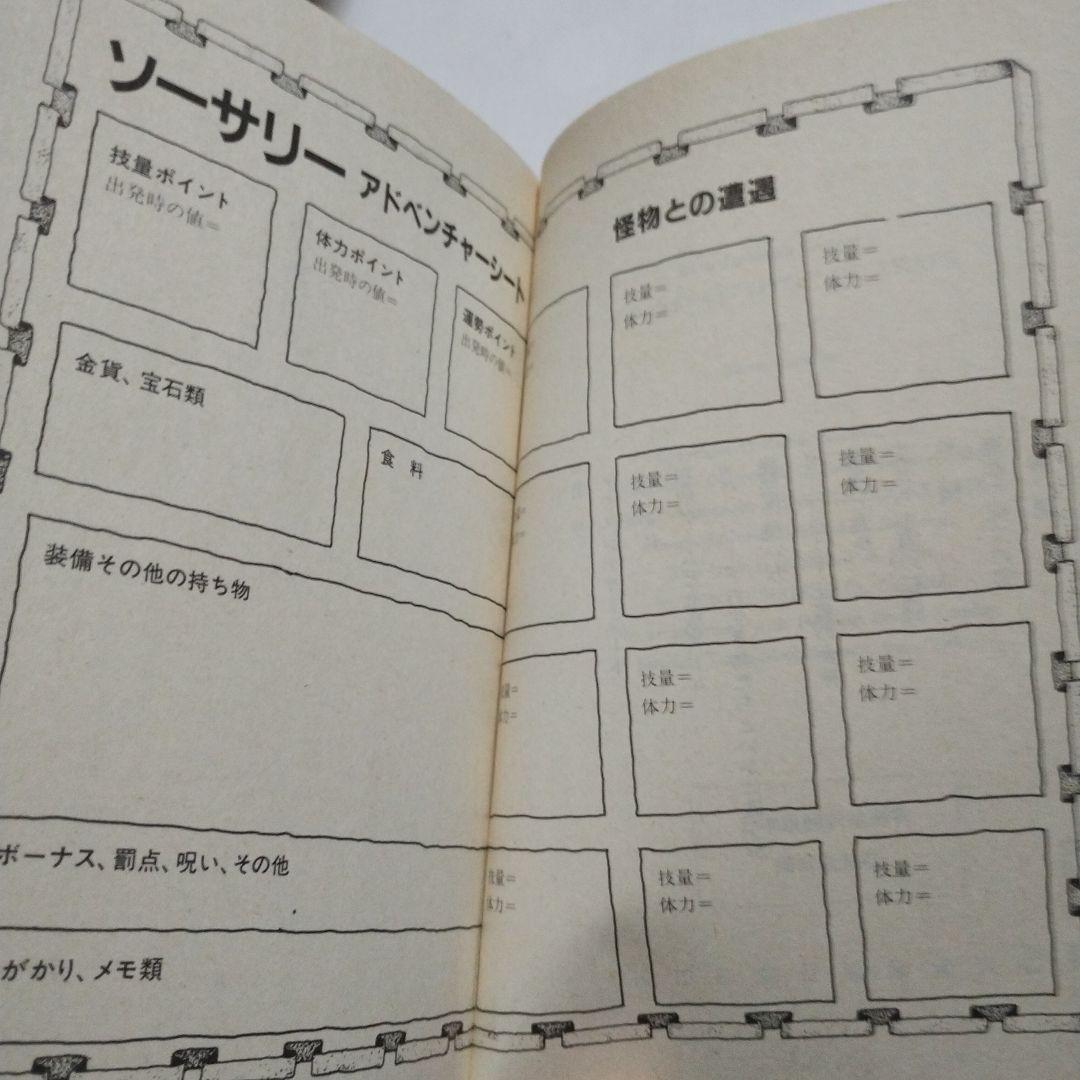 ソーサリー アドベンチャーシート
技量ポイント
出発時の値＝
体力ポイント
出発時の値＝
運勢ポイント
出発時の値＝
金貨、宝石類
食 料
装備その他の持ち物
ボーナス、罰点、呪い、その他
がかり、メモ類
怪物との遭遇
技量＝
体力＝
技量＝
体力＝
技量＝
体力＝
技量＝
体力＝
量＝
力＝
技量＝
体力＝
技量＝
体力＝
技量＝
体力＝
技量＝
体力＝
技量＝
体力＝